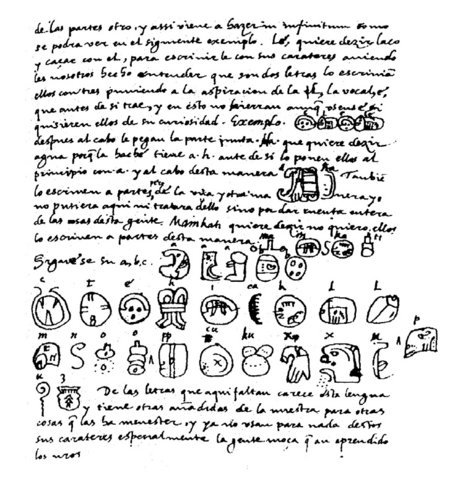 de las partes otro, y assi viene a hazer in infinitum como
se podra ver en el siguiente exemplo. Lé, quiere dezir laço
y caçar con el, para escrivirle con sus carateres aviendo
les nosotros hecho entender que son dos letras lo escrivian
ellos con tres puniendo a la aspiracion de la la vocal é,
que antes de si trae, y en esto no hierran aunq̃ usense, si
quisieren ellos de su curiosidad. Exemplo.
despues al cabo le pegan la parte junta. Ha que quiere dezir
agua porq̃ la hache tiene a.h. ante de si lo ponen ellos al
principio con a. y al cabo desta manera a ha Tambiẽ
lo escriven a partes, de la una y otra manera yo
no pusiera aqui ni tratara dello sino por dar cuenta entera
de las cosas desta gente. Mamkati quiere dezir no quiero, ellos
lo escriven a partes desta manera ma i n ka ti
Siguese su a, b, c. a a a b b
c t e h i ca k l l
m n o o pp cu ku x x u p
u z De las letras que aqui faltan carece esta lengua
y tiene otras añadidas de la nuestra para otras
cosas q̃ las ha menester, y ya no usan para nada destos
sus carateres especialmente la gente moça q̃ an aprendido
los nros